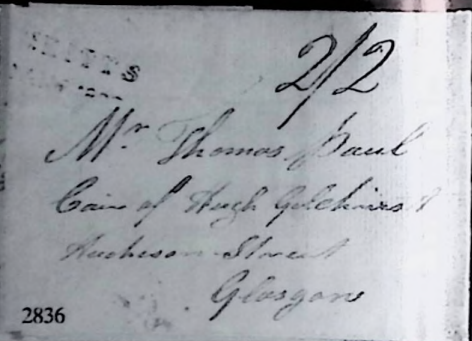 2/2
Mr Thomas Paul
Care of Hugh Gilchrist
Hucheson Street
Glasgow
2836